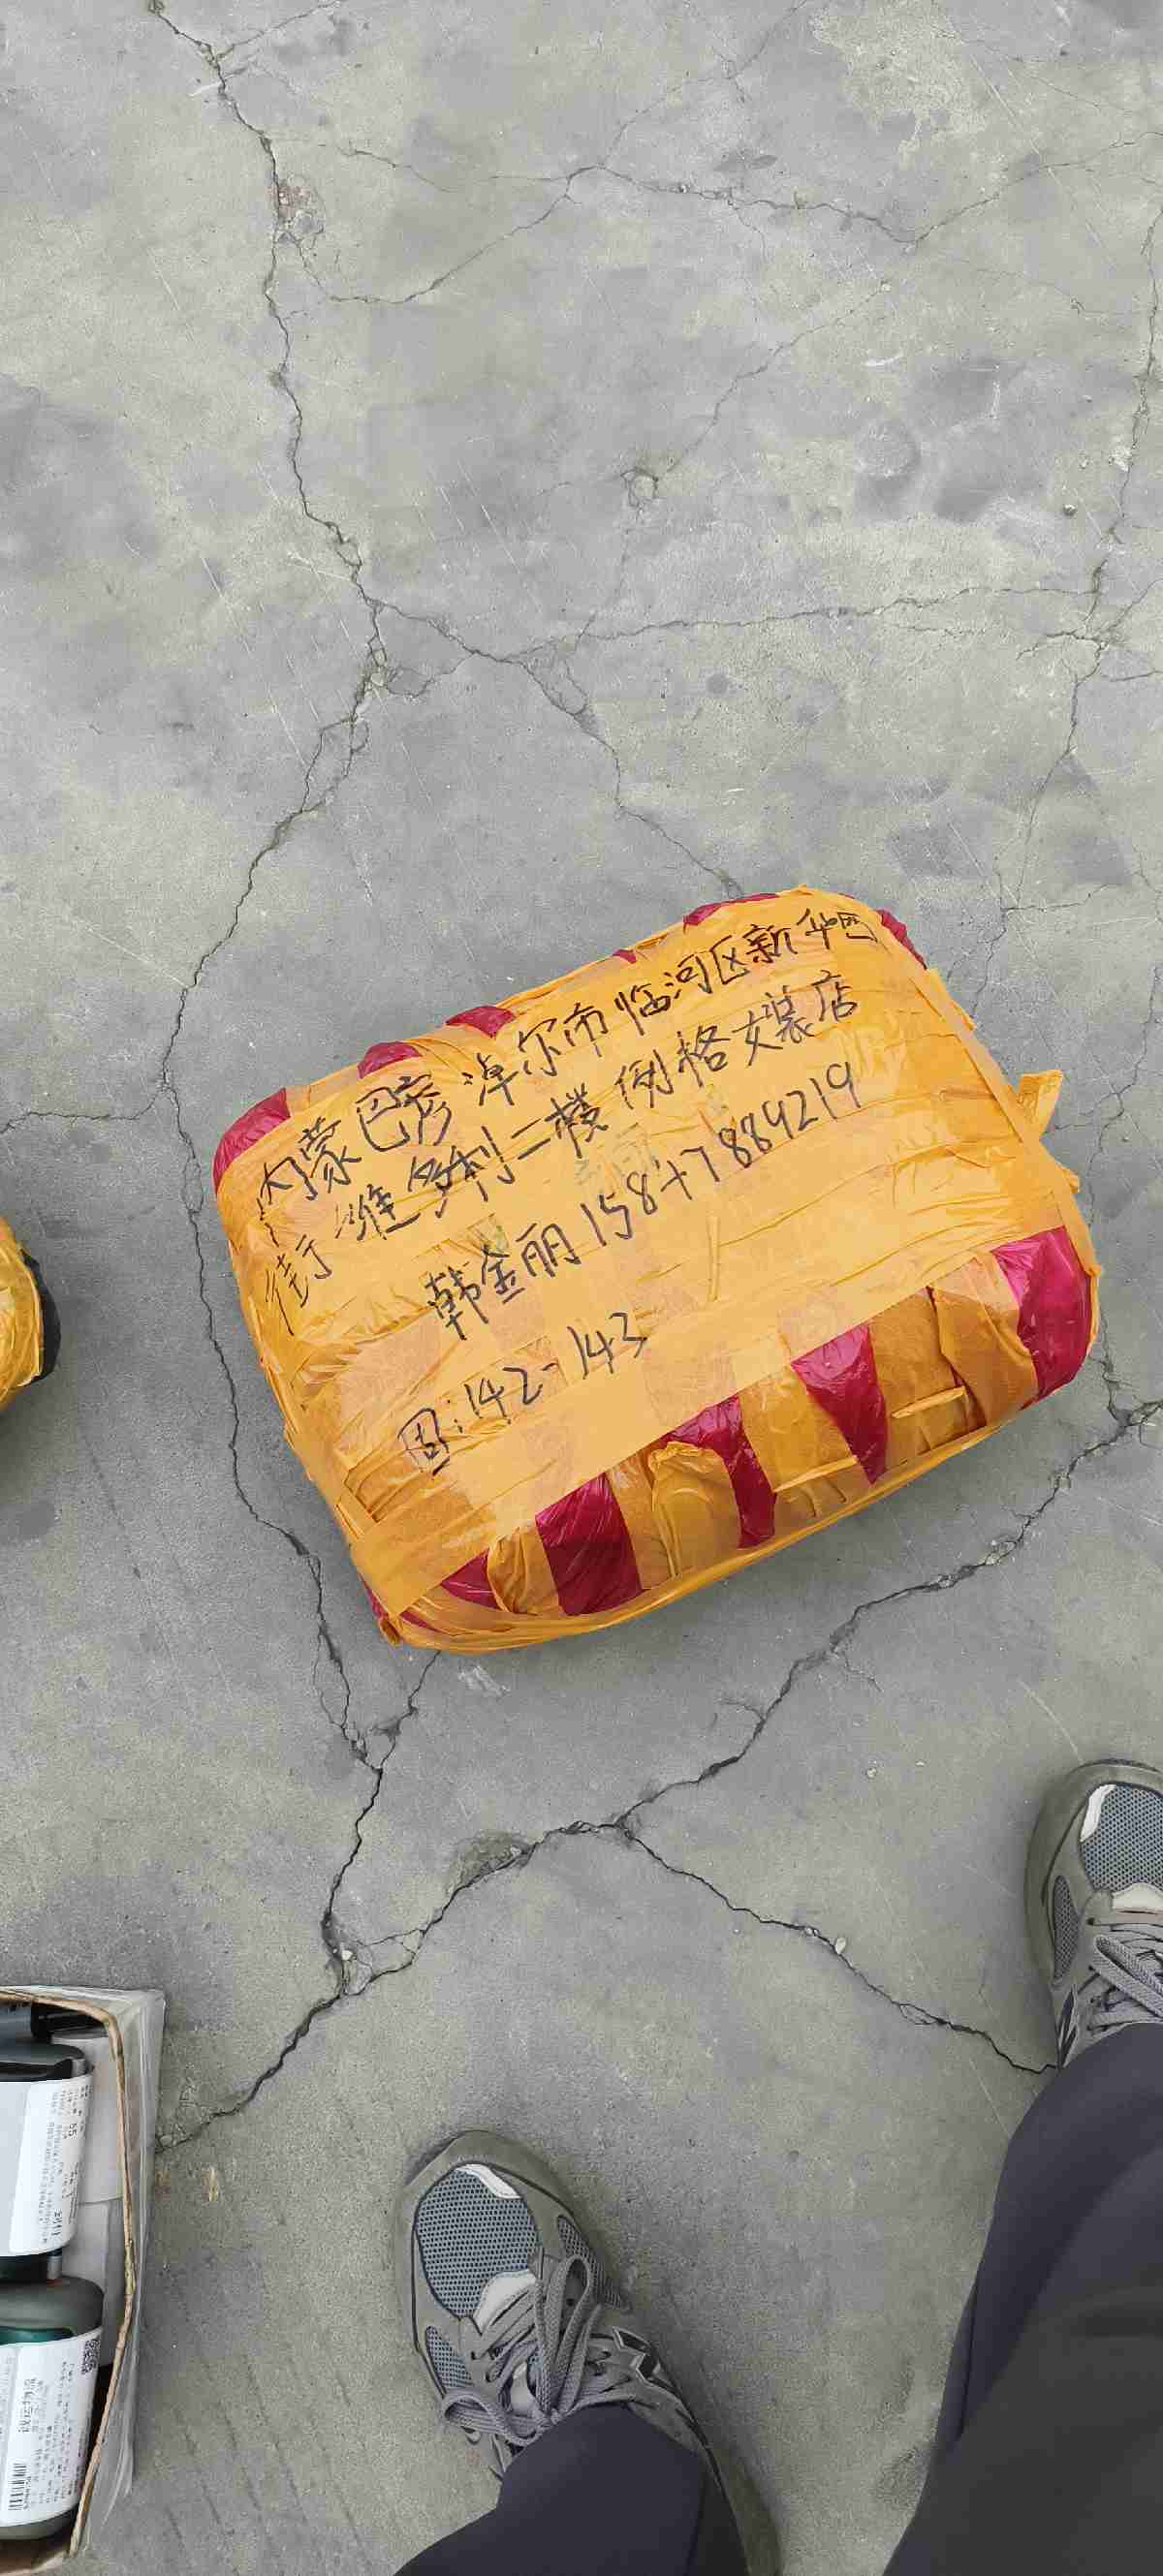 内蒙巴彦淖尔市临河区新华西
街于维多利二楼例格女装店
韩金丽 15847884219
固:142-143